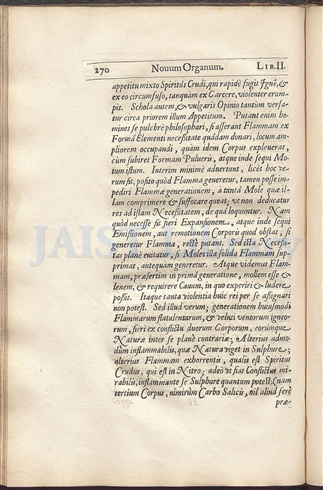 270 Novum Organum. LIB.II.
appetitu mixto Spiritûs Crudi, qui rapidè fugit Ignē, &
ex eo circumfuso, tanquàm ex Carcere, violenter erum-
pit. Schola autem, & vulgaris Opinio tantùm versa-
tur circa priorem illum Appetitum. Putant enim ho-
mines se pulchrè philosophari, si asserant Flammam ex
Formâ Elementi necessitate quâdam donari, locum am-
pliorem occupandi, quàm idem Corpus expleverat,
cùm subiret Formam Pulveris, atque inde sequi Mo-
tum istum. Interim minimè advertunt, licèt hoc ve-
rum sit, posito quòd Flamma generetur, tamen posse im-
pediri Flammæ generationem, à tantâ Mole quæ il-
lam comprimere & suffocare queat; ut non deducatur
res ad istam Necessitatem, de quâ loquuntur. Nam
quòd necesse sit fieri Expansionem, atque inde sequi
Emissionem, aut remotionem Corporis quod obstat, si
generetur Flamma, rectè putant. Sed ista Necessi-
tas planè evitatur, si Moles illa solida Flammam sup-
primat, antequàm generetur. Atque videmus Flam-
mam, præsertim in primâ generatione, mollem esse &
lenem, & requirere Cavum, in quo experiri & ludere
possit. Itaque tanta violentia huic rei per se assignari
non potest. Sed illud verum; generationem hujusmodi
Flammarum flatulentarum, & veluti ventorum igneo-
rum, fieri ex conflictu duorum Corporum, eorumque
Naturæ inter se planè contrariæ; Alterius admo-
dùm inflammabilis, quæ Natura viget in Sulphure;
alterius Flammam exhorrentis, qualis est Spiritus
Crudus, qui est in Nitro; adeò ut fiat Conflictus mi-
rabilis, inflammante se Sulphure quantùm potest; (nam
tertium Corpus, nimirùm Carbo Salicis, nil aliud ferè
præ-
JAIS